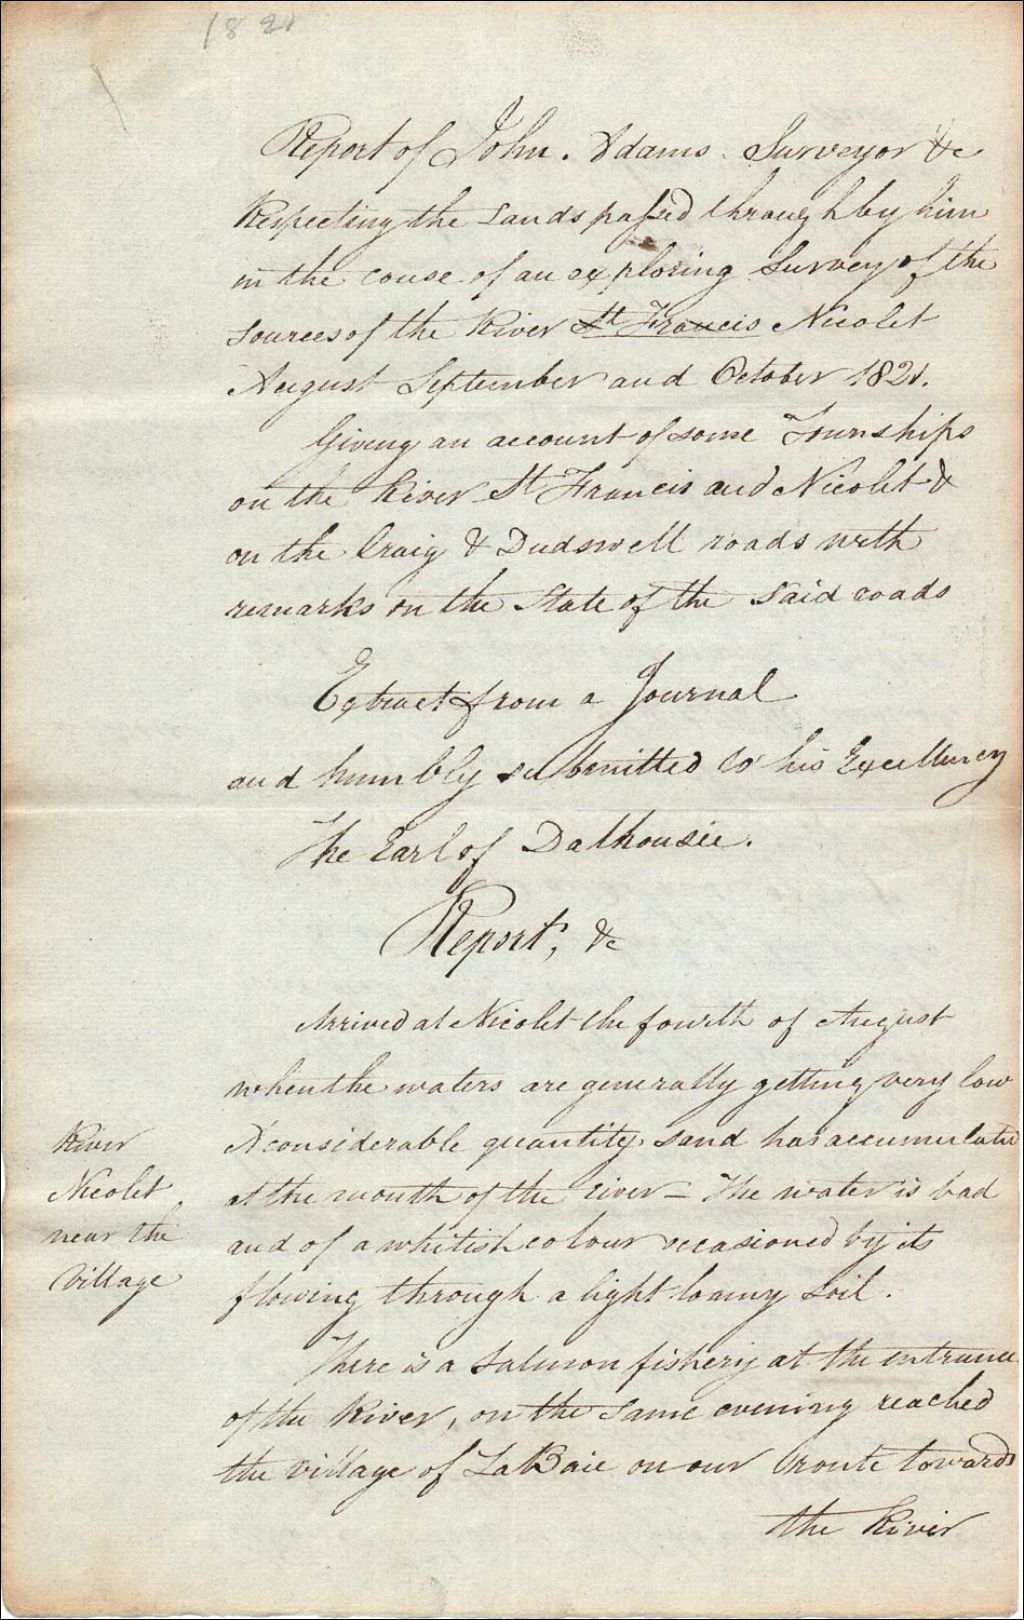 1821
Report of John. Adams. Surveyor &c
Respecting the Lands passed through by him
in the couse of an exploring Survey of the
sources of the River St Francis Nicolet
August September and October 1821.
Giving an account of some Townships
on the River St Francis and Nicolet &
on the Craig & Dudswell roads with
remarks on the State of the said roads
Extract from a Journal
and humbly submitted to his Excellency
The Earl of Dalhousie.
Report, &c
Arrived at Nicolet the fourth of August
when the waters are generally getting very low
A considerable quantity sand has accumulated
at the mouth of the river – The water is bad
and of a whitish colour occasioned by its
flowing through a light loamy soil.
River
Nicolet
near the
Village
There is a Salmon fishery at the entrance
of the River, on the same evening reached
the village of LaBaie on our route towards
the River